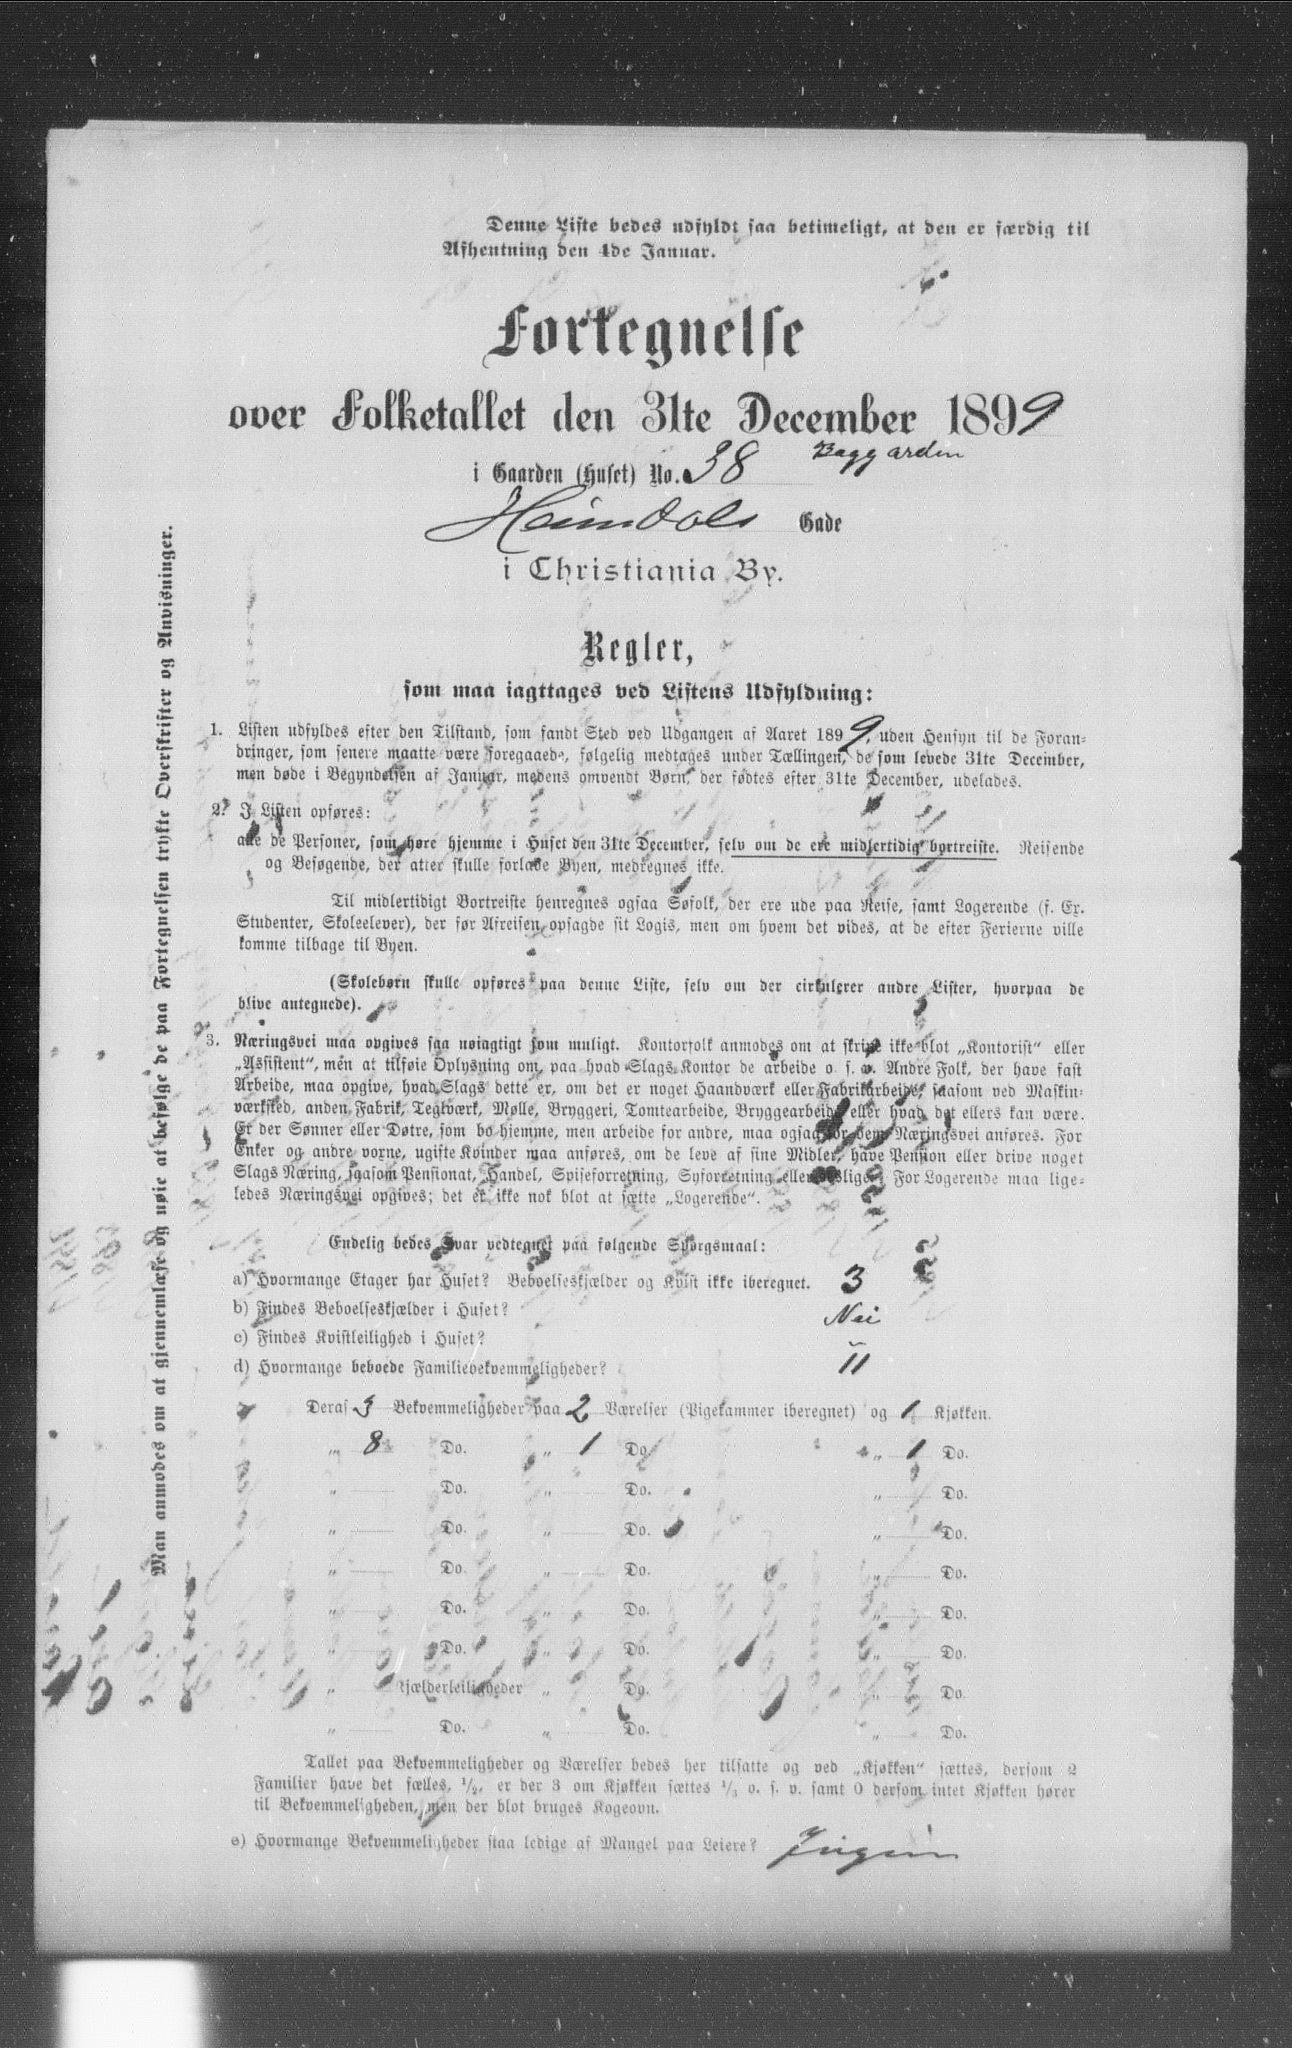 Denne Liste bedes udfyldt saa betimeligt, at den er færdig til
Afhentning den 4de Januar.
Fortegnelse
over Folketallet den 31te December 1899
i Gaarden (Huset) No. 38 Baggaarden
Heimdals Gade
i Christiania By.
Regler,
som maa iagttages ved Listens Udfyldning:
1. Listen udfyldes efter den Tilstand, som fandt Sted ved Udgangen af Aaret 1899, uden Hensyn til de Foran-
dringer, som senere maatte være foregaaede, følgelig medtages under Tællingen, de som levede 31te December,
men døde i Begyndelsen af Januar, medens omvendt Børn, der fødtes efter 31te December, udelades.
2. I Listen opføres:
alle de Personer, som høre hjemme i Huset den 31te December, selv om de ere midlertidig bortreiste. Reisende
og Besøgende, der atter skulle forlade Byen, medregnes ikke.
Til midlertidigt Bortreiste henregnes ogsaa Søfolk, der ere ude paa Reise, samt Logerende (f. Ex.
Studenter, Skoleelever), der før Afreisen opsagde sit Logis, men om hvem det vides, at de efter Ferierne ville
komme tilbage til Byen.
(Skolebørn skulle opføres paa denne Liste, selv om der cirkulerer andre Lister, hvorpaa de
blive antegnede).
3. Næringsvei maa opgives saa nøiagtigt som muligt. Kontorfolk anmodes om at skrive ikke blot „Kontorist“ eller
„Assistent“, men at tilføie Oplysning om, paa hvad Slags Kontor de arbeide o. s. v. Andre Folk, der have fast
Arbeide, maa opgive, hvad Slags dette er, om det er noget Haandværk eller Fabrikarbeide, saasom ved Maskin-
værksted, anden Fabrik, Teglværk, Mølle, Bryggeri, Tomtearbeide, Bryggearbeide eller hvad det ellers kan være.
Er der Sønner eller Døtre, som bo hjemme, men arbeide for andre, maa ogsaa for dem Næringsvei anføres. For
Enker og andre voxne, ugifte Kvinder maa anføres, om de leve af sine Midler, have Pension eller drive noget
Slags Næring, saasom Pensionat, Handel, Spiseforretning, Syforretning eller deslige. For Logerende maa lige-
ledes Næringsvei opgives; det er ikke nok blot at sætte „Logerende“.
Endelig bedes Svar vedtegnet paa følgende Spørgsmaal:
a) Hvormange Etager har Huset? Beboelseskjælder og Kvist ikke iberegnet. 3
b) Findes Beboelseskjælder i Huset? Nei
c) Findes Kvistleilighed i Huset? "
d) Hvormange beboede Familiebekvemmeligheder? 11
Deraf 3 Bekvemmeligheder paa 2 Værelser (Pigekammer iberegnet) og 1 Kjøkken.
„ 8 Do. „ 1 Do. „ 1 Do.
„ Do. „ Do. „ Do.
„ Do. „ Do. „ Do.
„ Do. „ Do. „ Do.
„ Do. „ Do. „ Do.
„ Do. „ Do. „ Do.
„ Kjælderleiligheder „ Do. „ Do.
„ Do. „ Do. „ Do.
Tallet paa Bekvemmeligheder og Værelser bedes her tilsatte og ved „Kjøkken“ sættes, dersom 2
Familier have det fælles, 1/2, er der 3 om Kjøkken sættes 1/3 o. s. v. samt 0 dersom intet Kjøkken hører
til Bekvemmeligheden, men der blot bruges Kogeovn.
e) Hvormange Bekvemmeligheder staa ledige af Mangel paa Leiere? Ingen
Man anmodes om at gjennemlæse og nøie at befølge de paa Fortegnelsen trykte Overskrifter og Anvisninger.